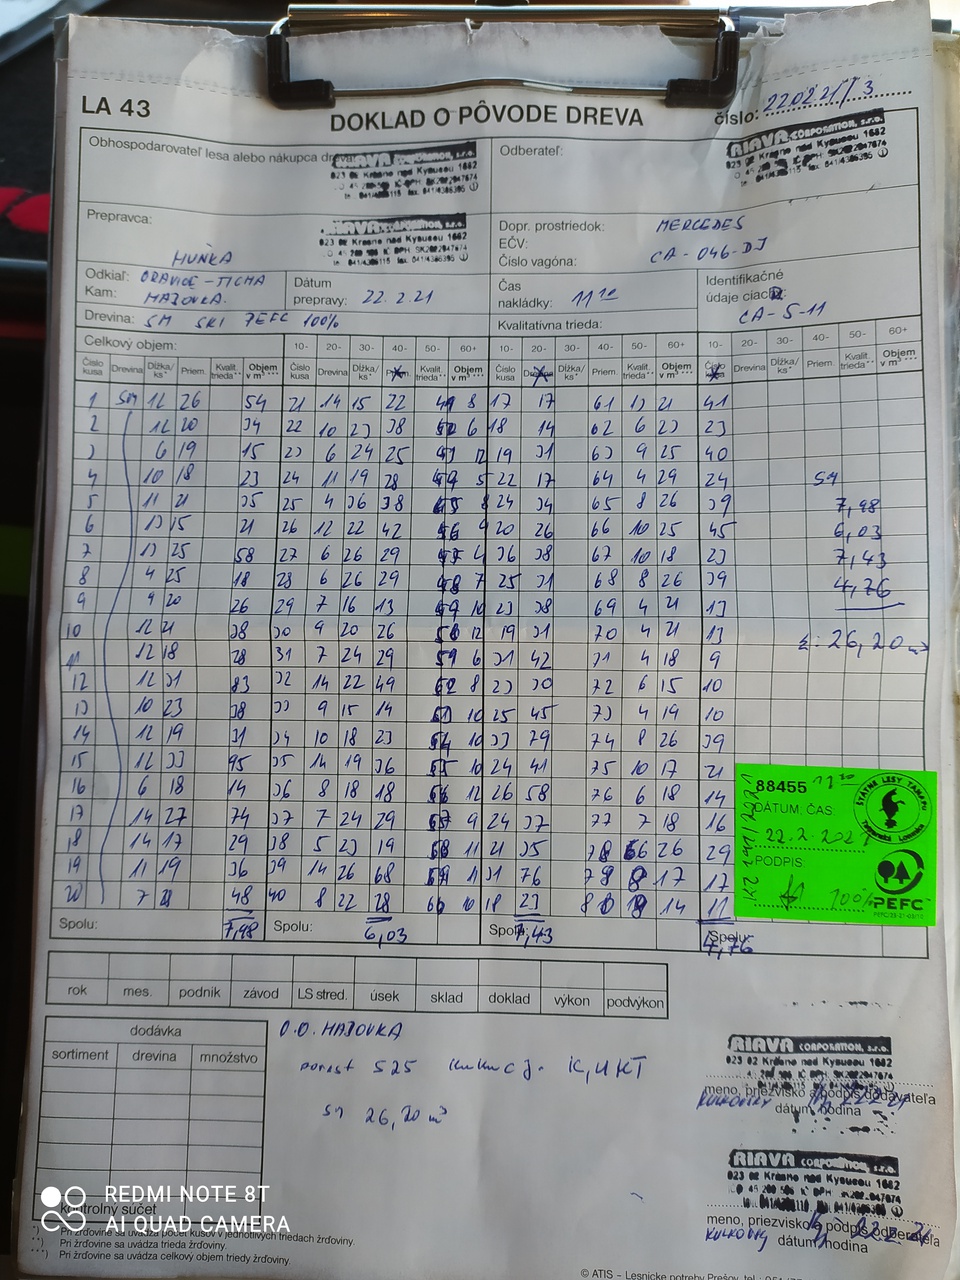 LA 43
DOKLAD O PÔVODE DREVA
číslo: 220221/3
Obhospodarovateľ lesa alebo nákupca dreva
RIAVA CORPORATION, s.r.o.
023 02 Krásno nad Kysucou 1682
Odberateľ:
RIAVA CORPORATION, s.r.o.
023 02 Krásno nad Kysucou 1682
Prepravca:
HUŇKA
RIAVA CORPORATION, s.r.o.
023 02 Krásno nad Kysucou 1682
Dopr. prostriedok: MERCEDES
EČV: CA-046-DJ
Číslo vagóna:
Odkiaľ: ORAVICE-TICHÁ
Kam: HÁJOVKA.
Dátum prepravy: 22.2.21
Čas nakládky: 11 30
Identifikačné údaje
CA-S-11
Drevina: SM SKI PEFC 100%
Kvalitatívna trieda:
Celkový objem:
10- 20- 30- 40- 50- 60+
10- 20- 30- 40- 50- 60+
10- 20- 30- 40- 50- 60+
Číslo kusa Drevina Dĺžka/ks* Priem. Kvalit. trieda** Objem v m³ ***
1 SM 12 26 54 21 14 15 22 41 8 17 17 61 13 21 41
2 12 20 34 22 10 23 38 42 6 18 14 62 6 23 23
3 6 19 15 23 6 24 25 43 12 19 31 63 9 25 40
4 10 18 23 24 11 19 28 44 5 22 17 64 4 29 24
5 11 21 35 25 4 36 38 45 8 24 34 65 8 26 39
6 13 15 21 26 12 22 42 46 9 20 26 66 10 25 45
7 13 25 58 27 6 26 29 47 4 36 38 67 10 18 23
8 4 25 18 28 6 26 29 48 7 25 31 68 8 26 39
9 9 20 26 29 7 16 13 49 10 23 38 69 4 21 13
10 12 21 38 30 9 20 26 50 12 19 31 70 4 21 13
11 12 18 28 31 7 24 29 51 6 31 42 71 4 18 9
12 12 31 83 32 14 22 49 52 8 23 30 72 6 15 10
13 10 23 38 33 9 15 14 53 10 25 45 73 4 19 10
14 12 19 31 34 10 18 23 54 10 33 79 74 8 26 39
15 12 33 95 35 14 19 36 55 10 24 41 75 10 17 21
16 6 18 14 36 8 18 18 56 12 26 58 76 6 18 14
17 14 27 74 37 7 24 29 57 9 24 37 77 7 18 16
18 14 17 29 38 5 23 19 58 11 21 35 78 6 26 29
19 11 19 36 39 14 26 68 59 11 31 76 79 8 17 17
20 7 28 48 40 8 22 28 60 10 18 23 80 8 14 11
SM
7,98
6,03
7,43
4,76
Σ: 26,20 m³
Spolu: 7,98 Spolu: 6,03 Spolu: 7,43 Spolu: 4,76
88455
DÁTUM, ČAS:
11 30
22.2.2021
PODPIS:
100%
ŠTÁTNE LESY TANAPU
Tatranská Lomnica
PEFC
rok mes. podnik závod LS stred. úsek sklad doklad výkon podvýkon
dodávka
sortiment drevina množstvo
kontrolný súčet
O.O. HÁJOVKA
porast 525
SM 26,20 m³
RIAVA CORPORATION, s.r.o.
023 02 Krásno nad Kysucou 1682
meno, priezvisko a podpis dodávateľa
dátum, hodina
RIAVA CORPORATION, s.r.o.
023 02 Krásno nad Kysucou 1682
meno, priezvisko a podpis odberateľa
dátum, hodina
*) Pri žrďovine sa uvádza počet kusov v jednotlivých triedach žrďoviny.
**) Pri žrďovine sa uvádza trieda žrďoviny.
***) Pri žrďovine sa uvádza celkový objem triedy žrďoviny.
© ATIS – Lesnícke potreby Prešov, tel.: 051/
REDMI NOTE 8T
AI QUAD CAMERA